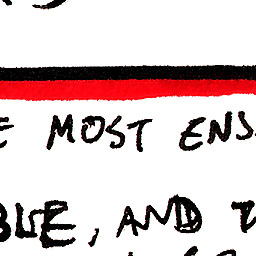 E MOST ENS
BLE, AND